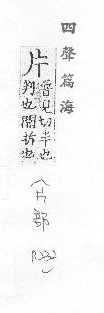 四聲篇海
片
普見切半也
判也開析也
片部